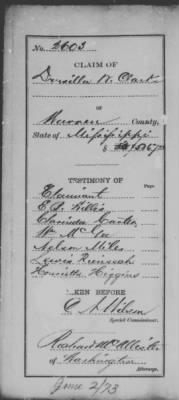 No. 2603
CLAIM OF
Drusilla W. Clark
OF
Warren County,
State of Mississippi
$
TESTIMONY OF
Page.
Claimant
E. S. Willis
Clarinda Carter
Wm McGee
Nelson Miles
Lewis
Henrietta Higgins
KEN BEFORE
A. Wilson
Special Commissioner.
Richard McAllister
of Washington
Attorney.
June 2/73